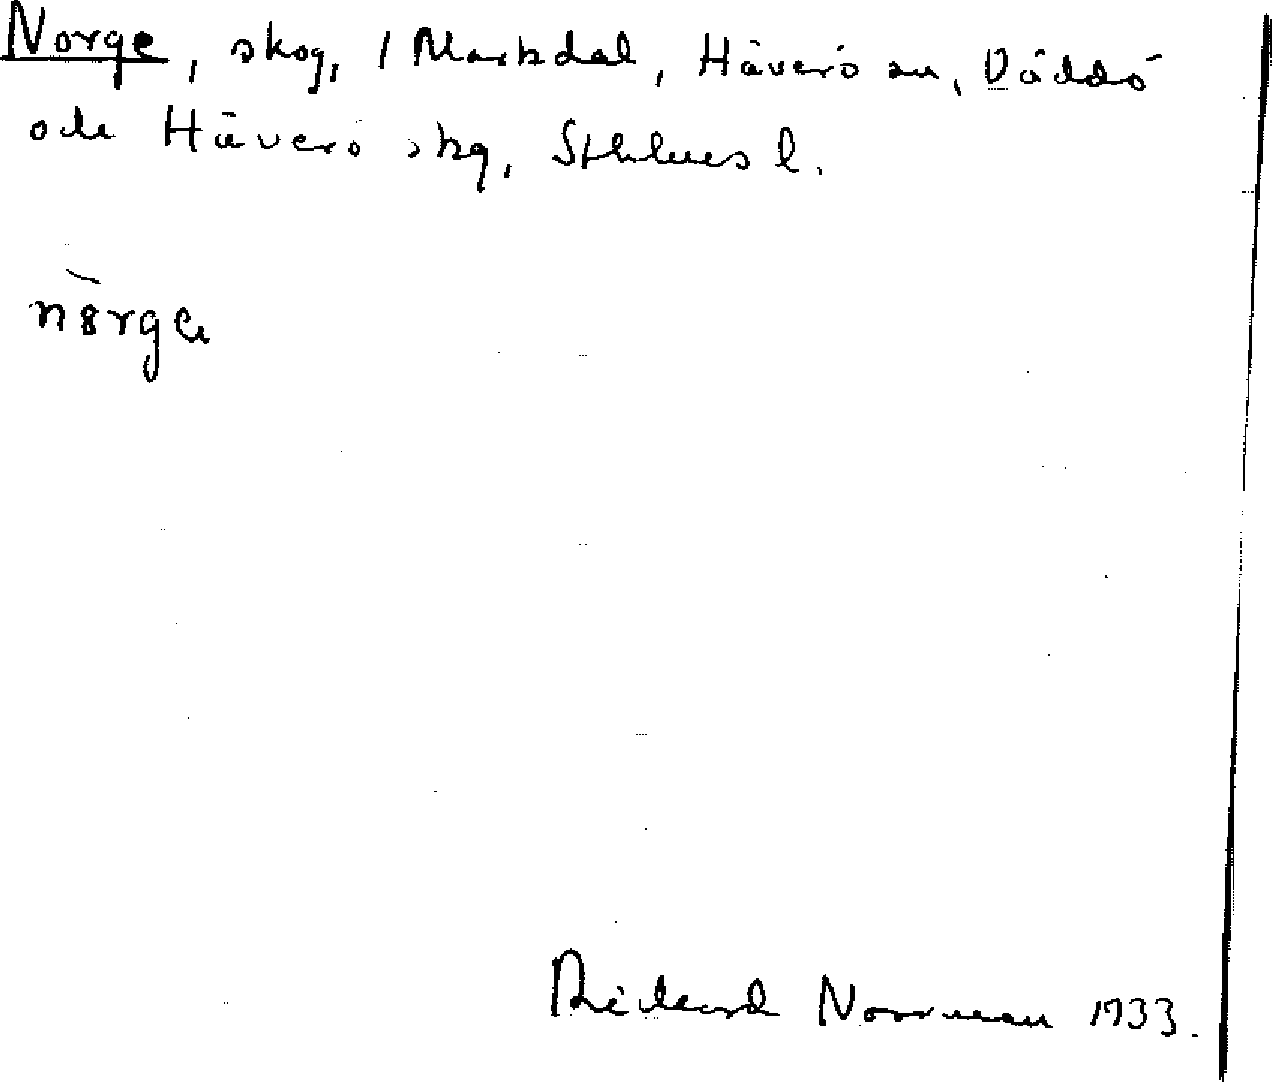 Norge, skog, 1 Markdal, Häverö sn, Väddö
och Häverö skg, Sthlms l.
nørga
Rickard Norrman 1933.